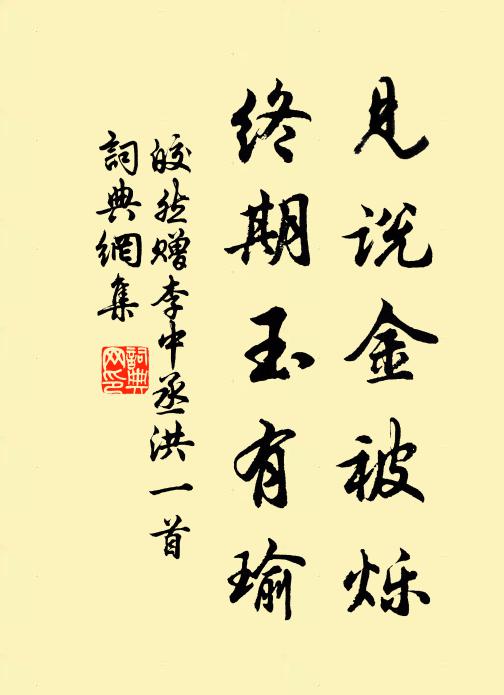 见说金被烁
终期玉有瑜
皎然赠李中丞洪一首
詞典網集
詞典网印